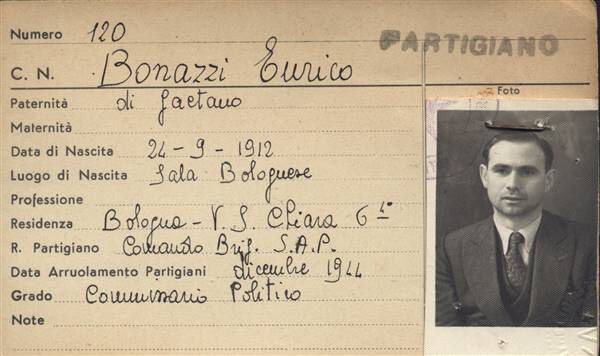 Numero 120
PARTIGIANO
C. N. Bonazzi Enrico
Foto
Paternità di Gaetano
Maternità
Data di Nascita 24-9-1912
Luogo di Nascita Sala Bolognese
Professione
Residenza Bologna - V. S. Chiara 6
R. Partigiano Comando Brig. S.A.P.
Data Arruolamento Partigiani dicembre 1944
Grado Commissario Politico
Note